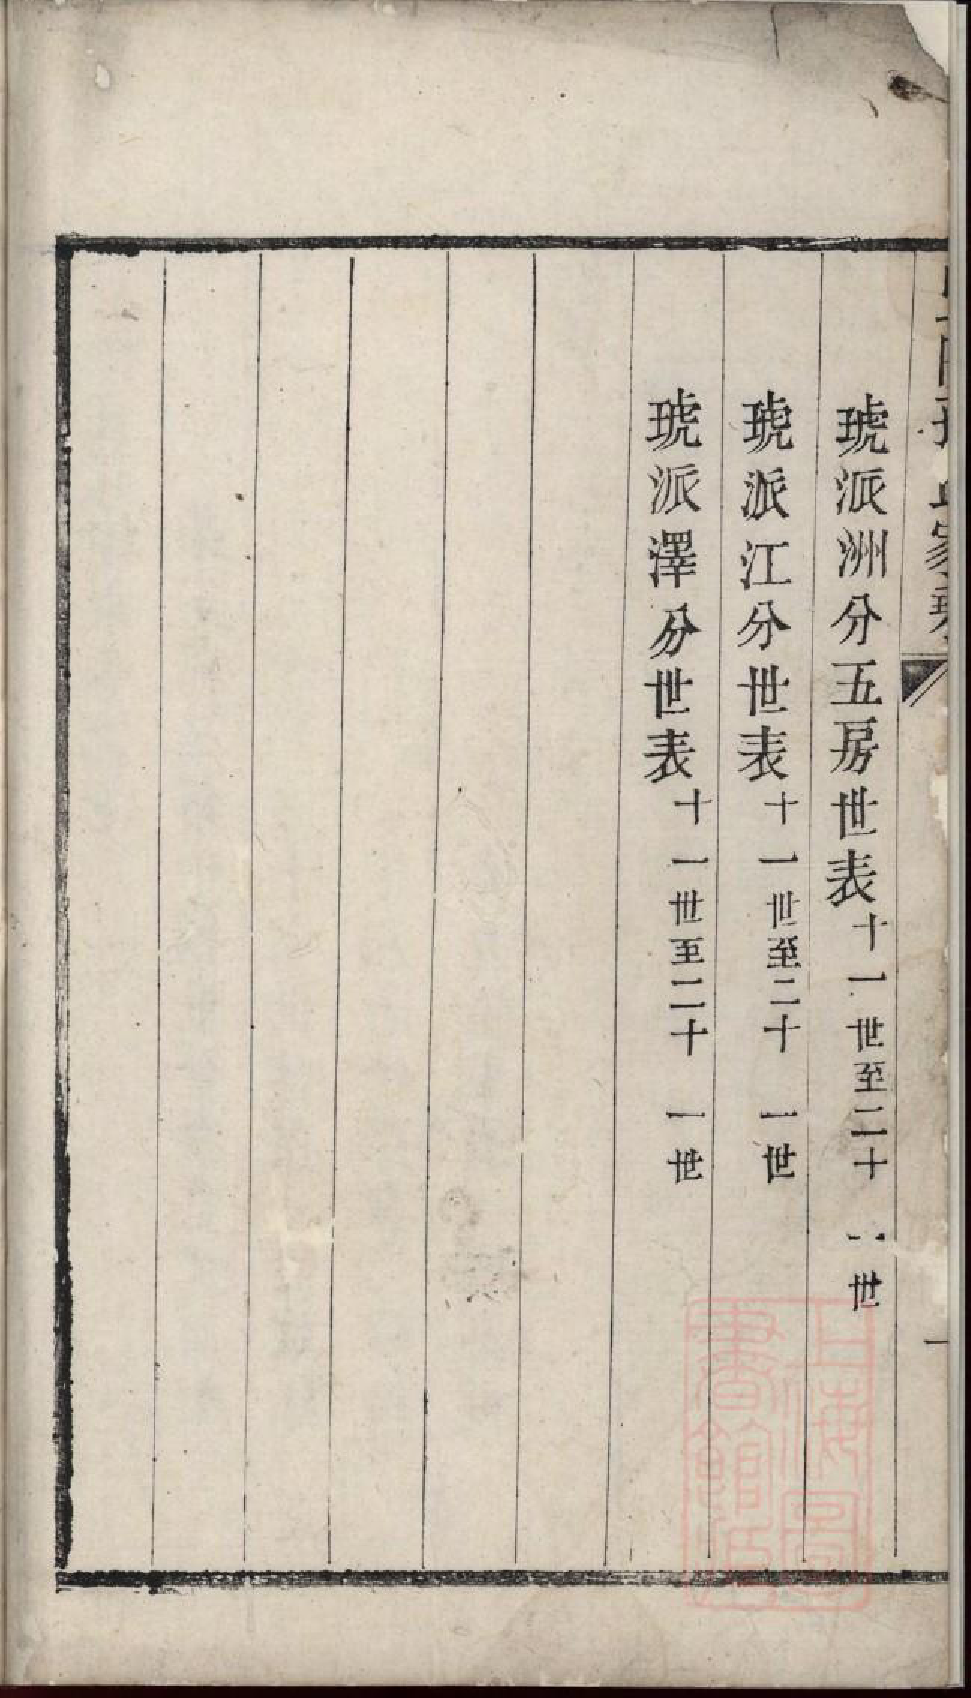 琥派洲分五房世表十一世至二十一世
琥派江分世表十一世至二十一世
琥派澤分世表十一世至二十一世
一
上海圖
書館藏